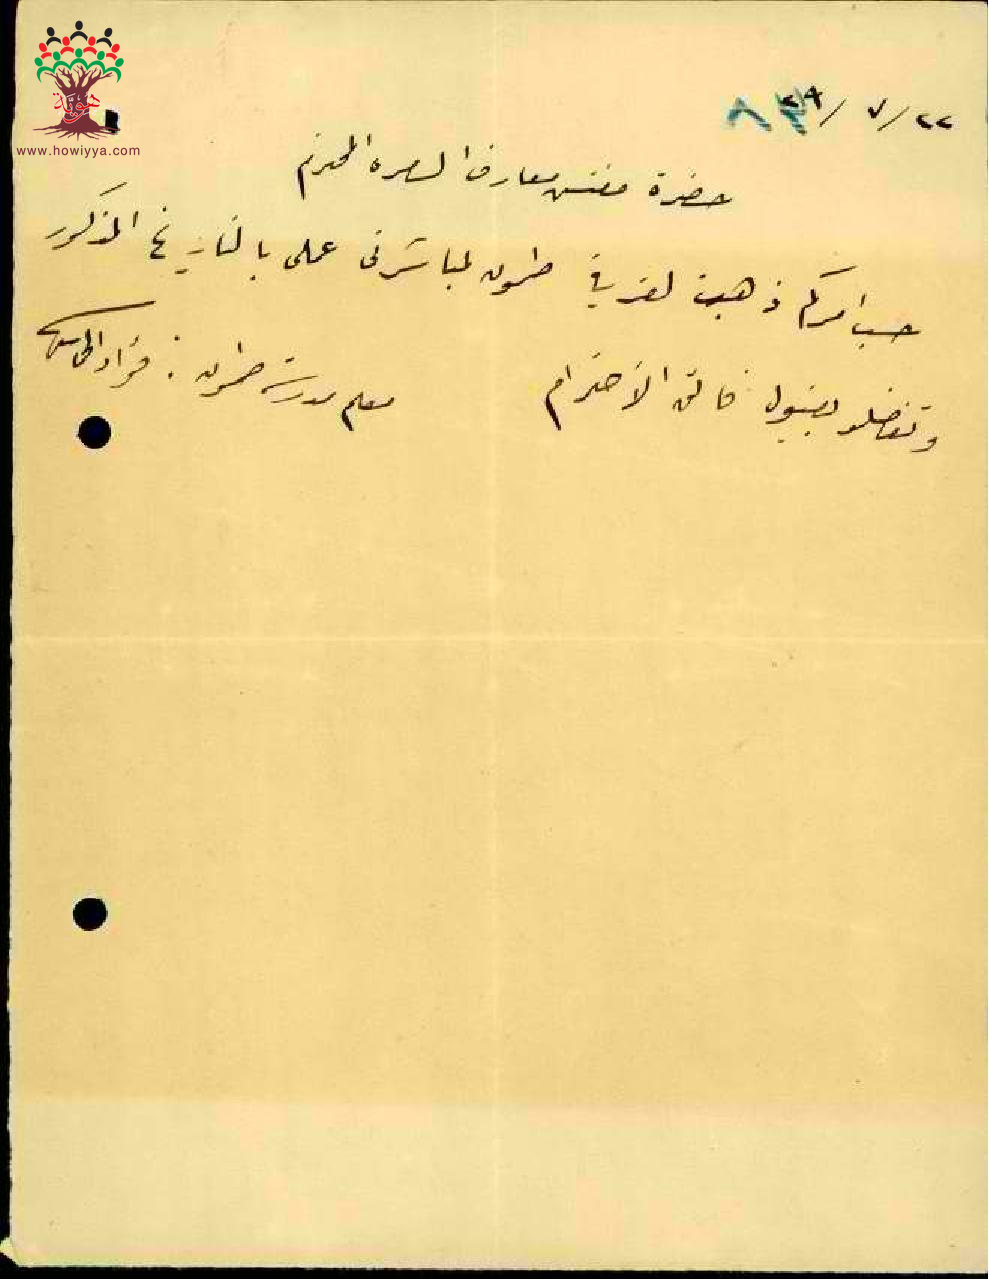 هوية
www.howiyya.com
٢٢/٧/٢٩
٨
حضرة مفتش معارف الناصرة المحترم
حسب امركم ذهبت لقرية طمون لمباشرتي عملي بالتاريخ المذكور
وتفضلو بقبول فائق الاحترام
معلم مدرسة طمون : فؤاد